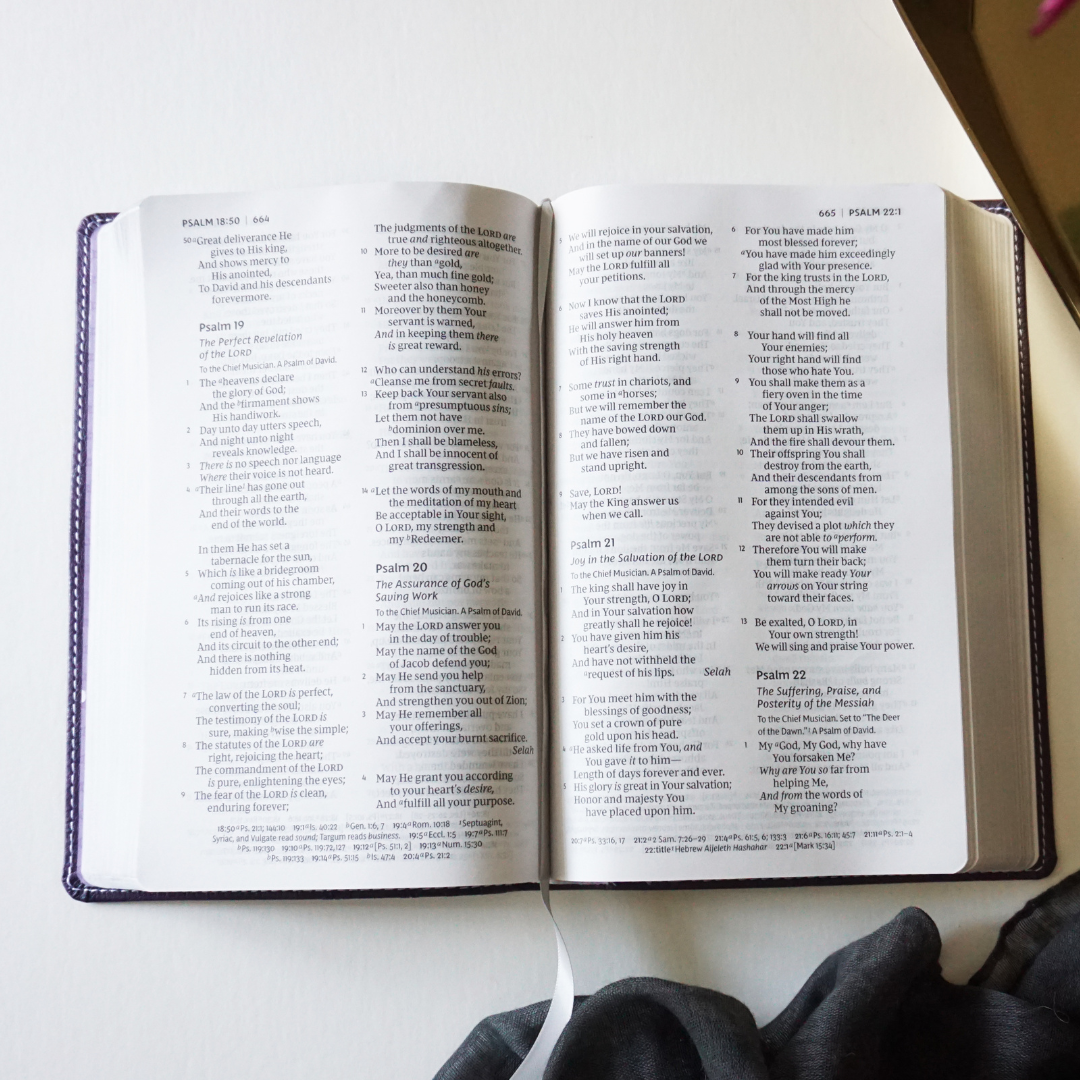 PSALM 18:50 | 664
50 aGreat deliverance He
gives to His king,
And shows mercy to
His anointed,
To David and his descendants
forevermore.
Psalm 19
The Perfect Revelation
of the LORD
To the Chief Musician. A Psalm of David.
1 The aheavens declare
the glory of God;
And the bfirmament shows
His handiwork.
2 Day unto day utters speech,
And night unto night
reveals knowledge.
3 There is no speech nor language
Where their voice is not heard.
4 aTheir line1 has gone out
through all the earth,
And their words to the
end of the world.
In them He has set a
tabernacle for the sun,
5 Which is like a bridegroom
coming out of his chamber,
aAnd rejoices like a strong
man to run its race.
6 Its rising is from one
end of heaven,
And its circuit to the other end;
And there is nothing
hidden from its heat.
7 aThe law of the LORD is perfect,
converting the soul;
The testimony of the LORD is
sure, making bwise the simple;
8 The statutes of the LORD are
right, rejoicing the heart;
The commandment of the LORD
is pure, enlightening the eyes;
9 The fear of the LORD is clean,
enduring forever;
The judgments of the LORD are
true and righteous altogether.
10 More to be desired are
they than agold,
Yea, than much fine gold;
Sweeter also than honey
and the honeycomb.
11 Moreover by them Your
servant is warned,
And in keeping them there
is great reward.
12 Who can understand his errors?
aCleanse me from secret faults.
13 Keep back Your servant also
from apresumptuous sins;
Let them not have
bdominion over me.
Then I shall be blameless,
And I shall be innocent of
great transgression.
14 aLet the words of my mouth and
the meditation of my heart
Be acceptable in Your sight,
O LORD, my strength and
my bRedeemer.
Psalm 20
The Assurance of God's
Saving Work
To the Chief Musician. A Psalm of David.
1 May the LORD answer you
in the day of trouble;
May the name of the God
of Jacob defend you;
2 May He send you help
from the sanctuary,
And strengthen you out of Zion;
3 May He remember all
your offerings,
And accept your burnt sacrifice.
Selah
4 May He grant you according
to your heart's desire,
And afulfill all your purpose.
18:50 a Ps. 21:1; 144:10 19:1 a Is. 40:22 b Gen. 1:6, 7 19:4 a Rom. 10:18 1 Septuagint,
Syriac, and Vulgate read sound; Targum reads business. 19:5 a Eccl. 1:5 19:7 a Ps. 111:7
b Ps. 119:130 19:10 a Ps. 119:72, 127 19:12 a [Ps. 51:1, 2] 19:13 a Num. 15:30
b Ps. 119:133 19:14 a Ps. 51:15 b Is. 47:4 20:4 a Ps. 21:2
665 | PSALM 22:1
5 We will rejoice in your salvation,
And in the name of our God we
will set up our banners!
May the LORD fulfill all
your petitions.
6 Now I know that the LORD
saves His anointed;
He will answer him from
His holy heaven
With the saving strength
of His right hand.
7 Some trust in chariots, and
some in ahorses;
But we will remember the
name of the LORD our God.
8 They have bowed down
and fallen;
But we have risen and
stand upright.
9 Save, LORD!
May the King answer us
when we call.
Psalm 21
Joy in the Salvation of the LORD
To the Chief Musician. A Psalm of David.
1 The king shall have joy in
Your strength, O LORD;
And in Your salvation how
greatly shall he rejoice!
2 You have given him his
heart's desire,
And have not withheld the
arequest of his lips. Selah
3 For You meet him with the
blessings of goodness;
You set a crown of pure
gold upon his head.
4 aHe asked life from You, and
You gave it to him—
Length of days forever and ever.
5 His glory is great in Your salvation;
Honor and majesty You
have placed upon him.
6 For You have made him
most blessed forever;
aYou have made him exceedingly
glad with Your presence.
7 For the king trusts in the LORD,
And through the mercy
of the Most High he
shall not be moved.
8 Your hand will find all
Your enemies;
Your right hand will find
those who hate You.
9 You shall make them as a
fiery oven in the time
of Your anger;
The LORD shall swallow
them up in His wrath,
And the fire shall devour them.
10 Their offspring You shall
destroy from the earth,
And their descendants from
among the sons of men.
11 For they intended evil
against You;
They devised a plot which they
are not able to aperform.
12 Therefore You will make
them turn their back;
You will make ready Your
arrows on Your string
toward their faces.
13 Be exalted, O LORD, in
Your own strength!
We will sing and praise Your power.
Psalm 22
The Suffering, Praise, and
Posterity of the Messiah
To the Chief Musician. Set to "The Deer
of the Dawn." 1 A Psalm of David.
1 My aGod, My God, why have
You forsaken Me?
Why are You so far from
helping Me,
And from the words of
My groaning?
20:7 a Ps. 33:16, 17 21:2 a 2 Sam. 7:26–29 21:4 a Ps. 61:5, 6; 133:3 21:6 a Ps. 16:11; 45:7 21:11 a Ps. 2:1–4
22:title 1 Hebrew Aijeleth Hashahar 22:1 a [Mark 15:34]